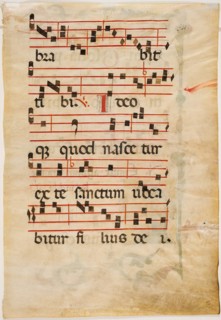 bra bit
ti bi. Ideo
q3 quod nasce tur
ex te sanctum uoca
bitur fi lius de i.